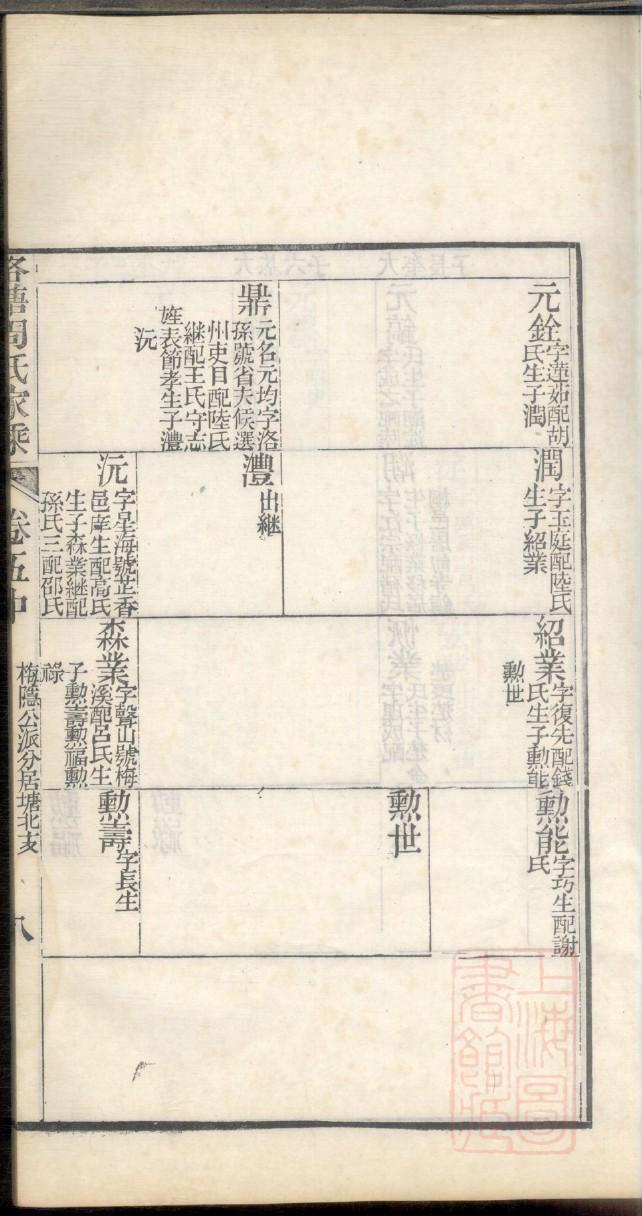 元銓字蓮茹配胡
氏生子潤
鼎元名元均字洛
孫號省夫候選
州吏目配陸氏
繼配王氏守志
旌表節孝生子澧
沅
潤字玉庭配陸氏
生子紹業
澧出繼
沅字星海號芷香
邑庠生配高氏
生子森業繼配
孫氏三配邵氏
紹業字復先配錢
氏生子勳能
勳世
森業字聲山號梅
溪配呂氏生
子勳壽勳福勳
祿
勳能字巧生配謝
氏
勳世
勳壽字長生
周氏家乘
卷五中
梅隱公派分居塘北支
八
上海圖
書館藏